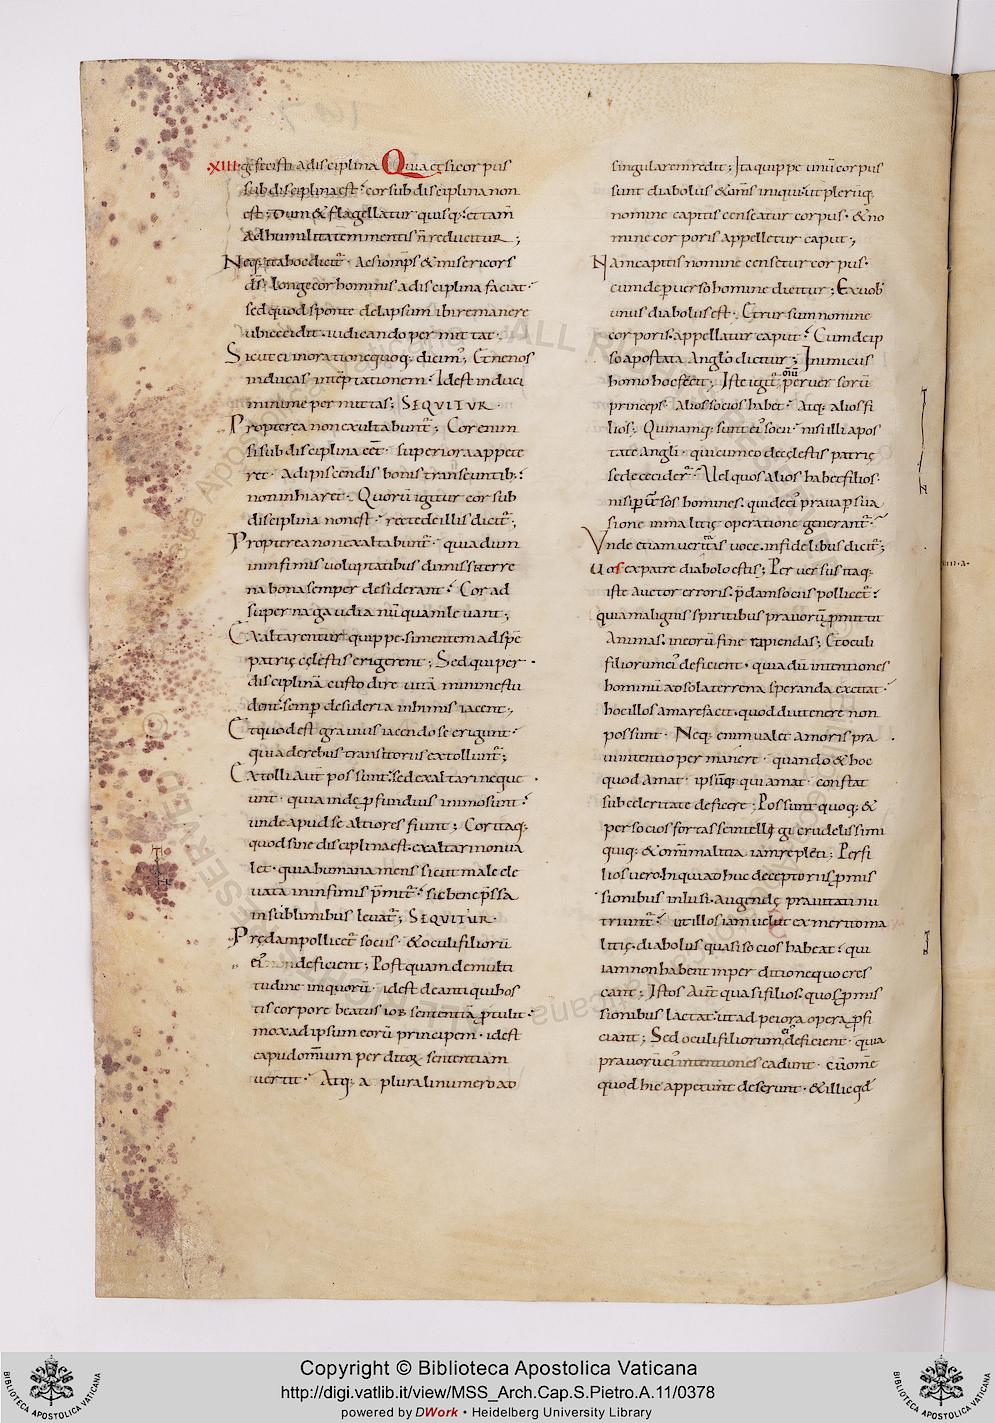 .XIII. gefecisti a disciplina Quia etsi corpus
sub disciplina est cor sub disciplina non
est; Dum & flagellatur quisq; et tam̄
ad humilitatem mentis n̄ reducitur;
Neq; ita hoc dicit̄ · Ac si omp̄s & misericors
d̄s · longe cor hominis a disciplina faciat·
sed quod sponte delapsum ibi remanere
ubi cecidit · iudicando permittat·
Sicut ei in oratione quoq; dicim; Et ne nos
inducas in tēptationem · Id est induci
minime permittas; SEQUITUR·
Propterea non exaltabunt̄; Cor enim
si sub disciplina eēt · superiora appete
ret · adipiscendis bonis transeuntib;
non inhiaret · Quorū igitur cor sub
disciplina non est · recte de illis dicit̄;
Propterea non exaltabunt̄ · quia dum
in infimis uoluptatibus dimissi terre
na bona semper desiderant · Cor ad
superna gaudia nūquam leuant;
Exaltarentur quippe · si mentem ad spē
patrię cęlestis erigerent; Sed qui per
disciplinā custodire uitā minime stu
dent · semp desideria in himis iacent;
Et quod est grauius iacendo se erigunt·
quia de rebus transitoriis extollunt̄;
Extolli aut̄ possunt · sed exaltari neque
unt · quia inde pfundius in imo sunt·
unde apud se altiores fiunt; Cor itaq;
quod sine disciplina est · exaltari non ua
let · quia humana mens sicut male ele
uata in infimis p̄mit̄ · sic bene p̄ssa
in sublimibus leuat̄; SEQUITUR·
Prędam pollicet̄ sociis · & oculi filiorū
ei; deficient; Postquam de multi
tudine iniquorū · id est de antiqui hos
tis corpore beatus iob sententiā ptulit·
mox ad ipsum eorū principem · id est
capud omnium perditorꝝ sententiam
uertit · Atq; a plurali numero ad
singularem redit; Ita quippe unū corpus
sunt diabolus & om̄s iniqui · ut plerūq;
nomine capitis censeatur corpus · & no
mine corporis appelletur caput;
Nam capitis nomine censetur corpus·
cum de peruerso homine dicitur; Ex uob̄
unus diabolus est · Et rursum nomine
corporis · appellatur caput · Cum de ip
so apostata Angelo dicitur; Inimicus
homo hoc fecit; Iste igit̄ oīū peruersorū
princeps · Alios socios habet · Atq; alios fi
lios; Qui namq; sunt ei; socii · nisi illi apos
tate Angli · qui cum eo de cęlestis patrię
sede cecider̄ · Uel quos alios habet filios·
nisi puersos homines · qui de ei; praua psua
sione in malitię operatione generant̄·
Unde etiam ueritatis uoce · infidelibus dicit̄;
Uos ex patre diabolo estis; Peruersus itaq;
iste auctor erroris · p̄dam sociis pollicet̄·
quia malignis spiritibus prauorū pmittit
Animas · in eorū fine rapiendas; Et oculi
filiorum ei; deficient · quia dū intentiones
hominū ad sola terrena speranda excitat·
hoc illos amare facit · quod diu tenere non
possunt · Neq; enim ualet amoris pra
ui intentio permanere · quando & hoc
quod amat · ipsūq; qui amat · constat
sub celeritate deficere; Possunt quoq; &
per socios fortasse intellegi crudelissimi
quiq; & omī malitia iam repleti; Per fi
lios uero · hi qui adhuc deceptoriis pmis
sionibus inlusi · augendę prauitati nu
triunt̄ · ut illos iam uelut ex merito ma
litię · diabolus quasi socios habeat · qui
iam non habent in perditione quo cres
cant; Istos aut̄ quasi filios · quos pmis
sionibus lactat · ut ad peiora opera pfi
ciant; Sed oculi filiorum ei; deficient · quia
prauorū intentiones cadunt · cū om̄e
quod hic appetunt deserunt · & illic qđ
Copyright © Biblioteca Apostolica Vaticana
http://digi.vatlib.it/view/MSS_Arch.Cap.S.Pietro.A.11/0378
powered by DWork • Heidelberg University Library
BIBLIOTECA APOSTOLICA VATICANA
BIBLIOTECA APOSTOLICA VATICANA